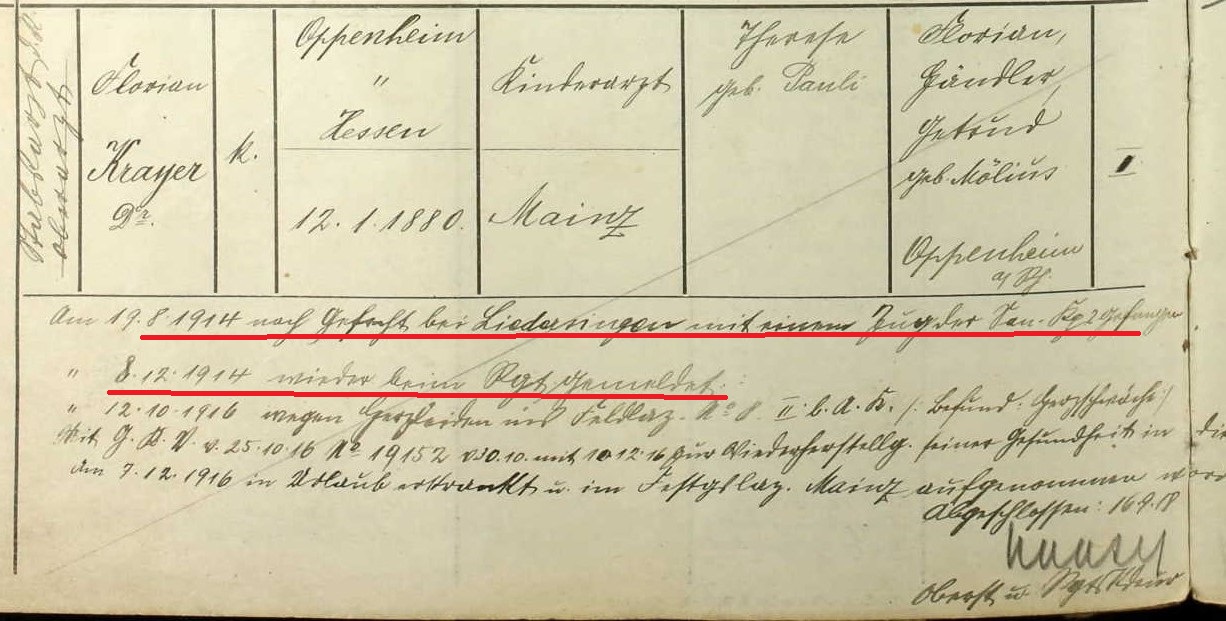 Stabsarzt d. R.
Oberarzt
Florian
Krayer
Dr.
k.
Oppenheim
"
Hessen
12. 1. 1880.
Kinderarzt
Mainz
Therese
geb. Pauli
Florian,
Händler,
Getrud
geb. Mölius
Oppenheim
a/Rh.
I
Am 19.8.1914 nach Gefecht bei Liedersingen mit einem Zug der San. Kp 2 gefangen
" 8.12.1914 wieder beim Rgt. gemeldet.
" 12.10.1916 wegen Herzleiden ins Feldlaz. No 8 II. b. A. K. /: Befund: Herzschwäche:/
Mit G. K. V. v. 25.10.16 No 19152 v 30.10. mit 10.12.16 zur Wiederherstellg. seiner Gesundheit in die
Am 7.12.1916 in Urlaub erkrankt u. im Festgslaz. Mainz aufgenommen
Abgeschlossen: 16.9.18
Oberst u. Rgts Kdeur